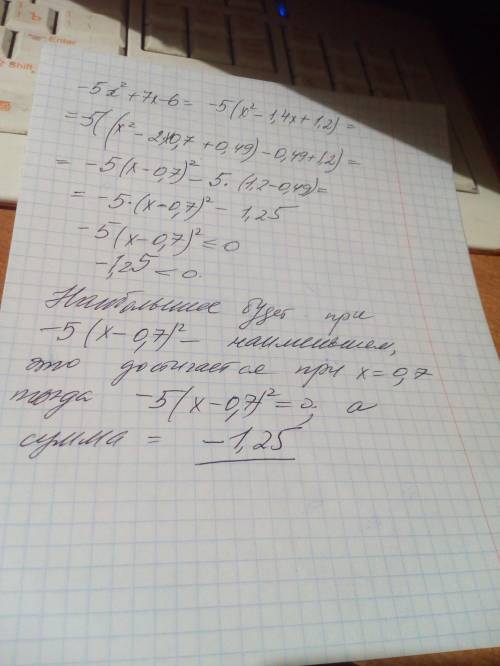 -5x² + 7x - 6 = -5(x² - 1,4x + 1,2) =
= 5((x² - 2x0,7 + 0,49) - 0,49 + 1,2) =
= -5(x - 0,7)² - 5·(1,2 - 0,49) =
= -5·(x - 0,7)² - 1,25
-5(x - 0,7)² ≤ 0
-1,25 < 0.
Наибольшее будет при
-5(x - 0,7)² - наименьшем,
это достигается при x = 0,7
тогда -5(x - 0,7)² = 0, а
сумма = -1,25
Enter
Shift